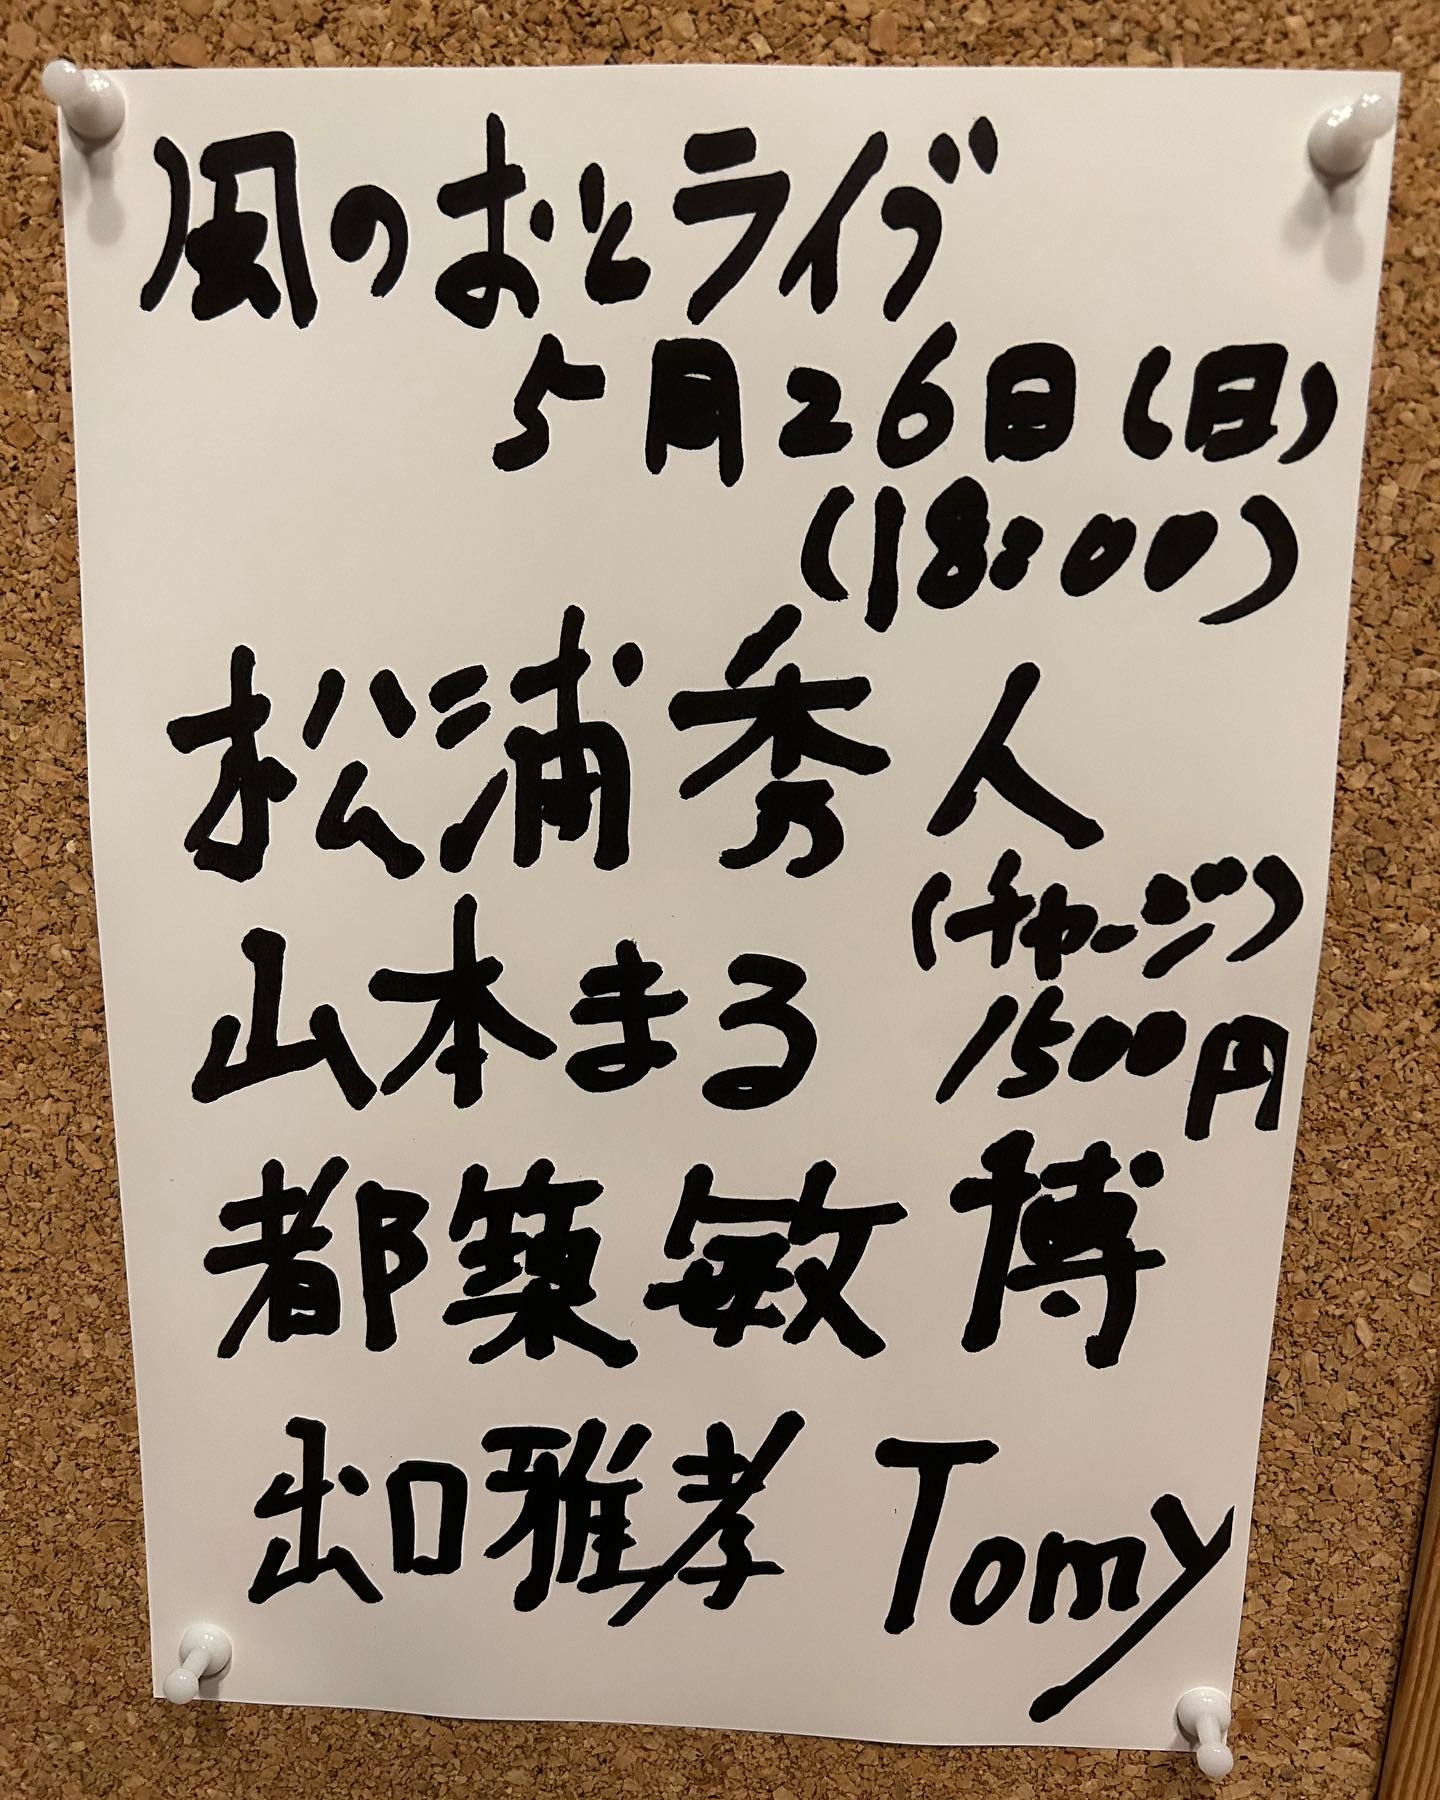 風のおとライブ
5月26日(日)
(18:00)
松浦秀人
(チャージ)
山本まる 1500円
都築敏博
出口雅孝 Tomy